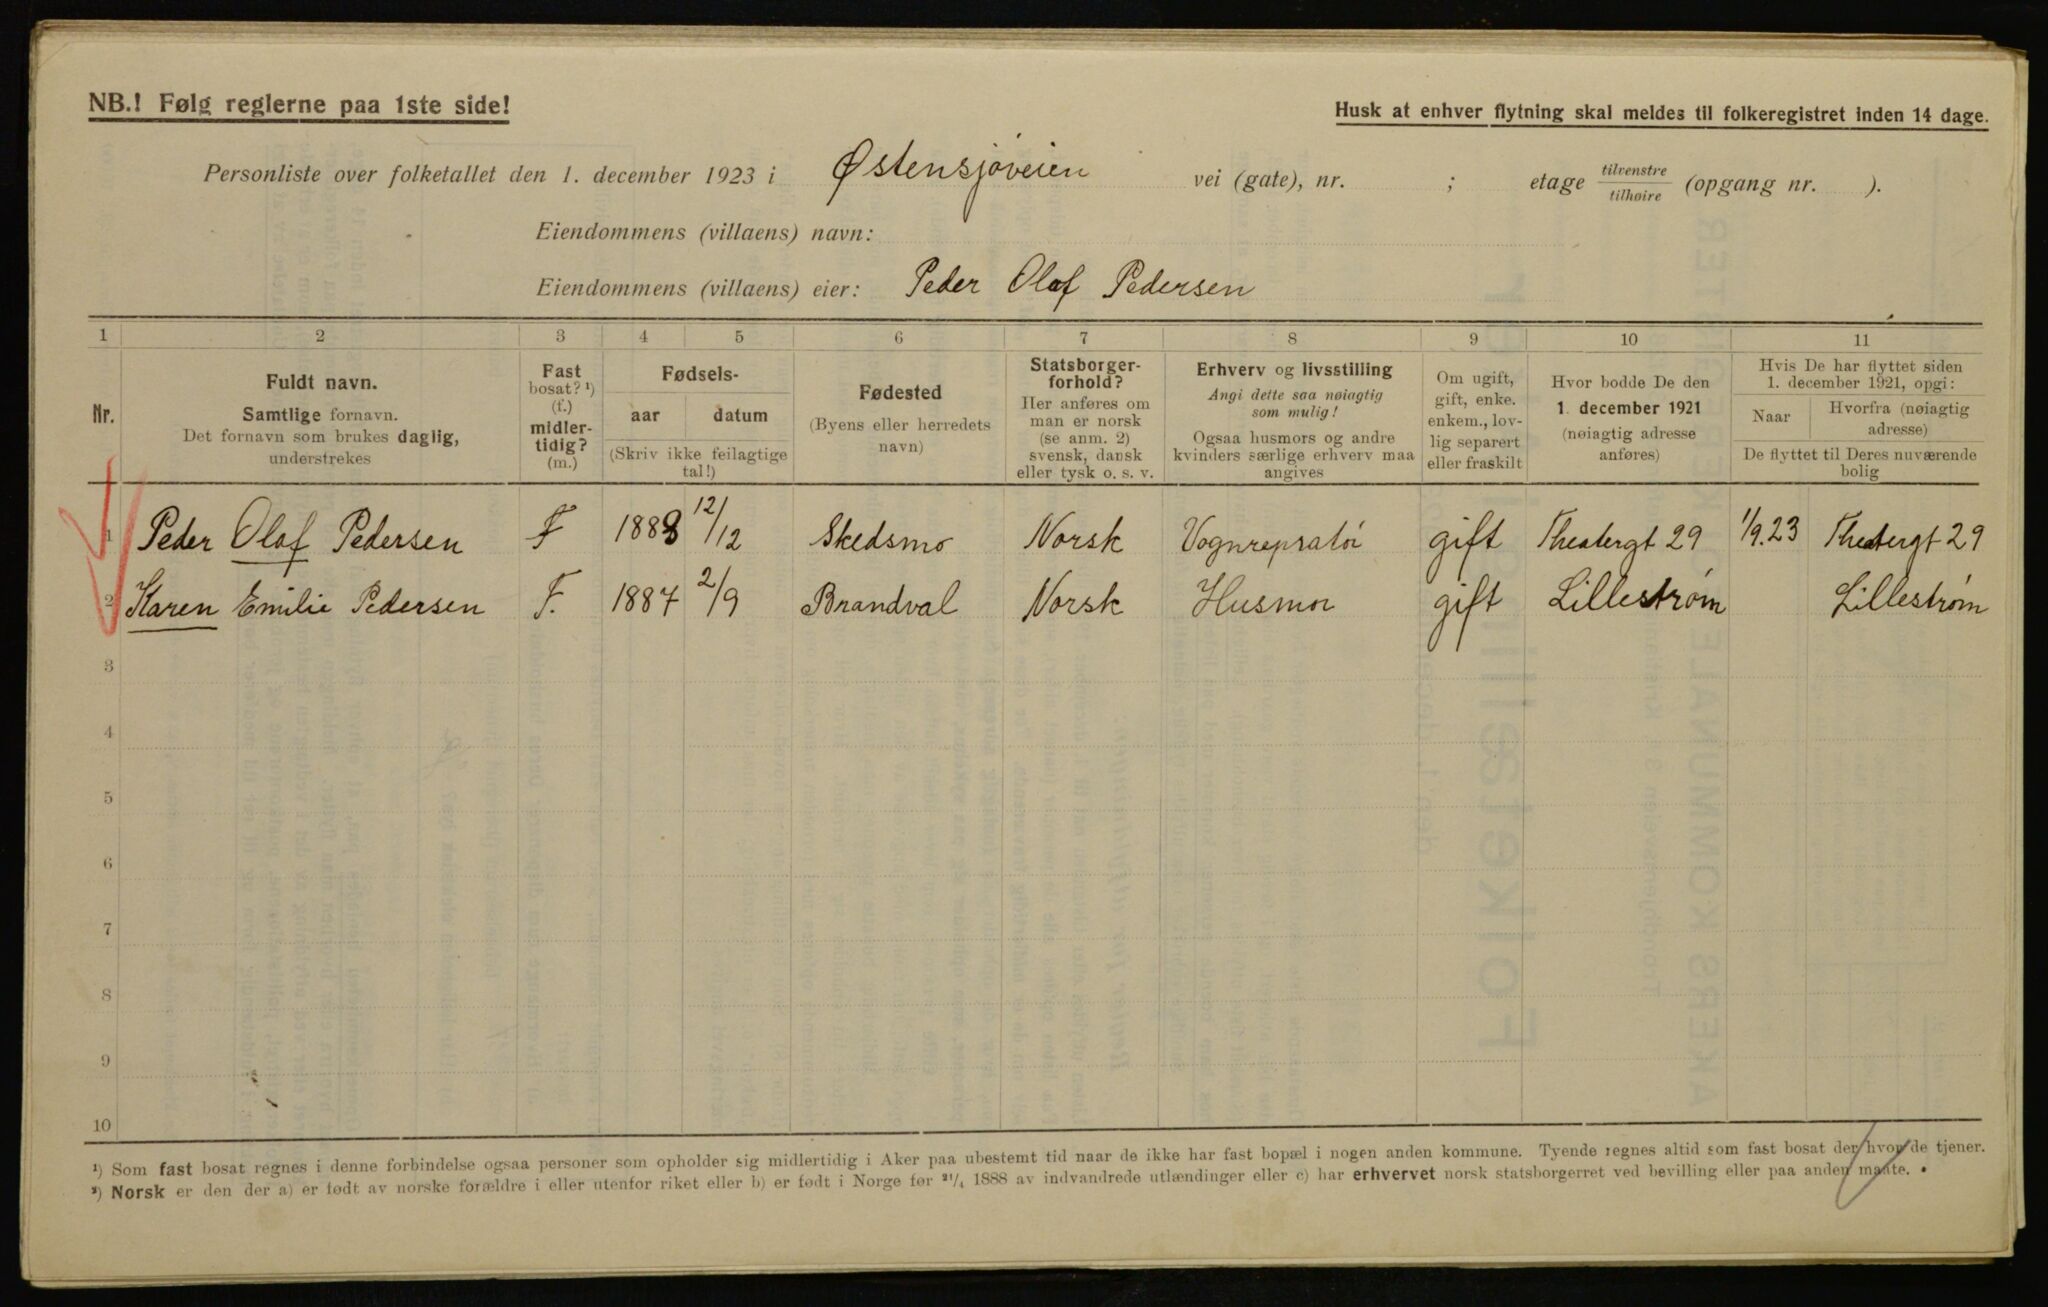 NB.! Følg reglerne paa 1ste side!
Husk at enhver flytning skal meldes til folkeregistret inden 14 dage.
Personliste over folketallet den 1. december 1923 i Østensjøveien vei (gate), nr. ; etage tilvenstre/tilhøire (opgang nr. ).
Eiendommens (villaens) navn:
Eiendommens (villaens) eier: Peder Olaf Pedersen
1 2 3 4 5 6 7 8 9 10 11
Nr.
Fuldt navn.
Samtlige fornavn.
Det fornavn som brukes daglig,
understrekes
Fast
bosat? ¹)
(f.)
midler-
tidig?
(m.)
Fødsels-
aar datum
(Skriv ikke feilagtige
tal!)
Fødested
(Byens eller herredets
navn)
Statsborger-
forhold?
Her anføres om
man er norsk
(se anm. 2)
svensk, dansk
eller tysk o. s. v.
Erhverv og livsstilling
Angi dette saa nøiagtig
som mulig!
Ogsaa husmors og andre
kvinders særlige erhverv maa
angives
Om ugift,
gift, enke.
enkem., lov-
lig separert
eller fraskilt
Hvor bodde De den
1. december 1921
(nøiagtig adresse
anføres)
Hvis De har flyttet siden
1. december 1921, opgi:
Naar
Hvorfra (nøiagtig
adresse)
De flyttet til Deres nuværende
bolig
1 Peder Olaf Pedersen F 1888 12/12 Skedsmo Norsk Vognrepratør gift Theatergt 29 1/9.23 Theatergt 29
2 Karen Emilie Pedersen F. 1887 2/9 Brandval Norsk Husmor gift Lillestrøm Lillestrøm
3
4
5
6
7
8
9
10
¹) Som fast bosat regnes i denne forbindelse ogsaa personer som opholder sig midlertidig i Aker paa ubestemt tid naar de ikke har fast bopæl i nogen anden kommune. Tyende regnes altid som fast bosat der hvor de tjener.
²) Norsk er den der a) er født av norske forældre i eller utenfor riket eller b) er født i Norge før 21/4 1888 av indvandrede utlændinger eller c) har erhvervet norsk statsborgerret ved bevilling eller paa anden maate.